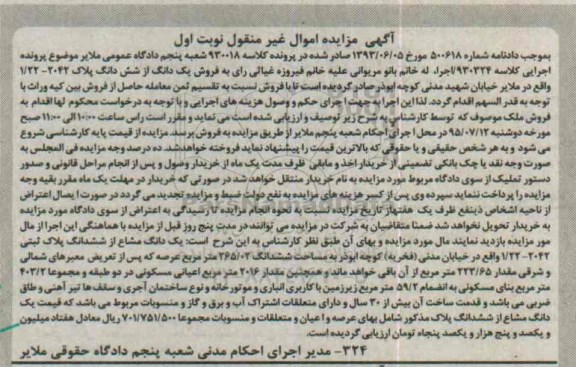 آگهی مزایده اموال غیر منقول نوبت اول
بموجب دادنامه شماره ۵۰۰۶۱۸ مورخ ۱۳۹۳/۰۶/۰۵ صادر شده در پرونده کلاسه ۹۳۰۰۱۸ شعبه پنجم دادگاه عمومی ملایر موضوع پرونده
اجرایی کلاسه ۹۳۰۳۲۴/اجرا، له خانم بانو مریوانی علیه خانم فیروزه غیاثی رای به فروش یک دانگ از شش دانگ پلاک ۲۰۴۲- ۱/۲۲
واقع در ملایر خیابان شهید مدنی کوچه ابوذر صادر گردیده است تا با فروش نسبت به تقسیم ثمن معامله حاصل از فروش بین کیه وراث با
توجه به قدر السهم اقدام گردد. لذا این اجرا به جهت اجرای حکم و وصول هزینه های اجرایی و با توجه به درخواست محکوم لها اقدام به
فروش ملک موصوف که توسط کارشناس به شرح زیر توصیف و ارزیابی شده است می نماید و مقرر است راس ساعت ۱۰:۰۰ الی ۱۱:۰۰ صبح
مورخه دوشنبه ۹۵/۰۷/۱۲ در محل اجرای احکام شعبه پنجم ملایر از طریق مزایده به فروش برسد. مزایده از قیمت پایه کارشناسی شروع
می شود و به هر شخص حقیقی و یا حقوقی که بالاترین قیمت را پیشنهاد نماید فروخته خواهد شد. ده درصد وجه مزایده فی المجلس به
صورت وجه نقد یا چک بانکی تضمینی از خریدار اخذ و مابقی ظرف مدت یک ماه از خریدار وصول و پس از انجام مراحل قانونی و صدور
دستور تملیک از سوی دادگاه مربوط مورد مزایده به نام خریدار منتقل خواهد شد در صورتی که خریدار در مهلت یک ماه مقرر بقیه وجه
مزایده را پرداخت ننماید سپرده وی پس از کسر هزینه های مزایده به نفع دولت ضبط و مزایده تجدید می گردد در صورت ایصال اعتراض
از ناحیه اشخاص ذینفع ظرف یک هفته از تاریخ مزایده نسبت به نحوه انجام مزایده تا رسیدگی به اعتراض از سوی دادگاه مورد مزایده
به خریدار تحویل نخواهد شد ضمنا متقاضیان به شرکت در مزایده می توانند در مدت پنج روز قبل از مزایده با هماهنگی این اجرا از مال
مور مزایده بازدید نمایند مال مورد مزایده و بهای آن طبق نظر کارشناس به این شرح است: یک دانگ مشاع از ششدانگ پلاک ثبتی
۲۰۴۲- ۱/۲۲ واقع در خیابان مدنی (فخریه) کوچه ابوذر به مساحت ششدانگ ۲۶۵/۰۲ متر مربع عرصه که پس از تعریض معبرهای شمالی
و شرقی مقدار ۲۲۳/۶۵ متر مربع از آن باقی خواهد ماند و همچنین مقدار ۲۰۱۶ متر مربع اعیانی مسکونی در دو طبقه و مجموعا ۴۰۳/۲
متر مربع بنای مسکونی به انضمام ۵۹/۲ متر مربع زیرزمین با کاربری انباری و موتورخانه و نوع ساختمان آجری و سقف ها تیر آهنی و طاق
ضربی می باشد و قدمت ساخت آن بیش از ۳۰ سال و دارای متعلقات اشتراک آب و برق و گاز و منسوبات مربوط می باشد که قیمت یک
دانگ مشاع از ششدانگ پلاک مذکور شامل بهای عرصه و اعیان و متعلقات و منسوبات مجموعا ۷۰۱/۷۵۱/۵۰۰ ریال معادل هفتاد میلیون
و یکصد و پنج هزار و یکصد پنجاه تومان ارزیابی گردیده است.
۳۲۴- مدیر اجرای احکام مدنی شعبه پنجم دادگاه حقوقی ملایر